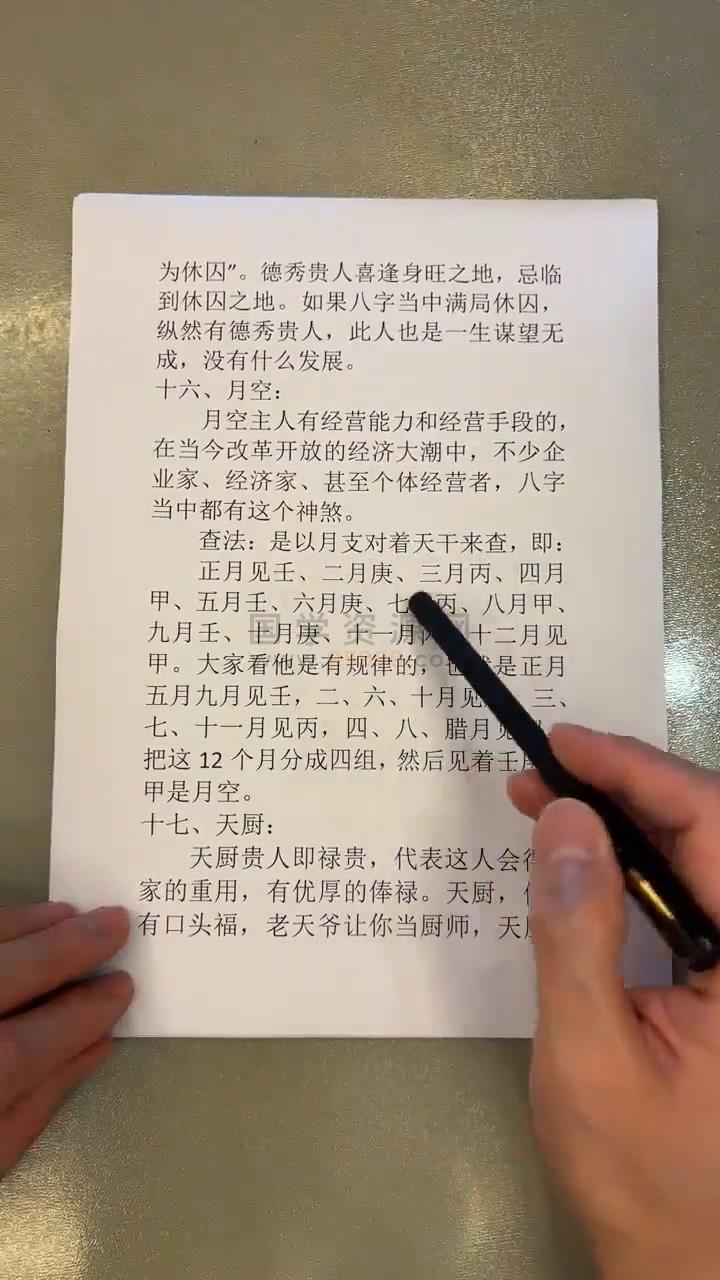 为休囚”。德秀贵人喜逢身旺之地，忌临
到休囚之地。如果八字当中满局休囚，
纵然有德秀贵人，此人也是一生谋望无
成，没有什么发展。
十六、月空：
月空主人有经营能力和经营手段的，
在当今改革开放的经济大潮中，不少企
业家、经济家、甚至个体经营者，八字
当中都有这个神煞。
查法：是以月支对着天干来查，即：
正月见壬、二月庚、三月丙、四月
甲、五月壬、六月庚、七 丙、八月甲、
九月壬、十月庚、十一月 十二月见
国学资源网
甲。大家看他是有规律的， 是正月
五月九月见壬，二、六、十月见 三、
七、十一月见丙，四、八、腊月见
把这 12 个月分成四组，然后见着壬
甲是月空。
十七、天厨：
天厨贵人即禄贵，代表这人会
家的重用，有优厚的俸禄。天厨，
有口头福，老天爷让你当厨师，天